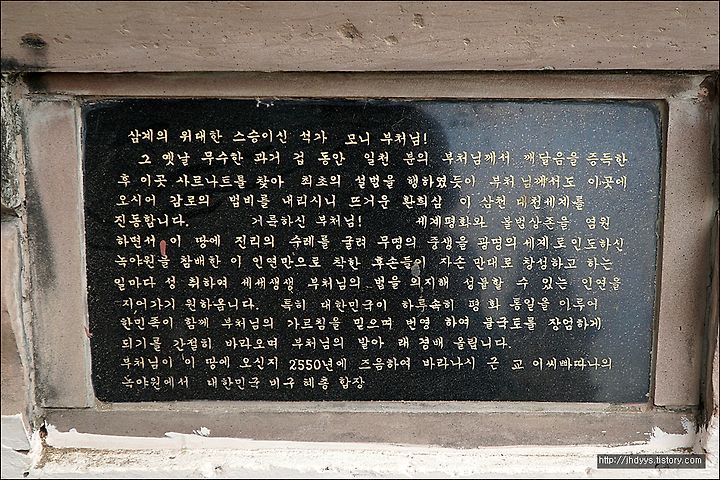 삼계의 위대한 스승이신 석가 모니 부처님!
그 옛날 무수한 과거 겁 동안 일천 분의 부처님께서 깨달음을 증득한
후 이곳 사르나트를 찾아 최초의 설법을 행하였듯이 부처님께서도 이곳에
오시어 감로의 법비를 내리시니 뜨거운 환희심 이 삼천 대천세계를
진동합니다. 거룩하신 부처님! 세계평화와 불법상존을 염원
하면서 이 땅에 진리의 수레를 굴려 무명의 중생을 광명의 세계로 인도하신
녹야원을 참배한 이 인연만으로 착한 후손들이 자손 만대로 창성하고 하는
일마다 성 취하여 세세생생 부처님의 법을 의지해 성불할 수 있는 인연을
지어가기 원하옵니다. 특히 대한민국이 하루속히 평 화 통일을 이루어
한민족이 함께 부처님의 가르침을 믿으며 번영 하여 불국토를 장엄하게
되기를 간절히 바라오며 부처님의 발아 래 경배 올립니다.
부처님이 이 땅에 오신지 2550년에 즈음하여 바라나시 근 교 이씨빠따나의
녹야원에서 대한민국 비구 혜출 합장
http://jhdyys.tistory.com